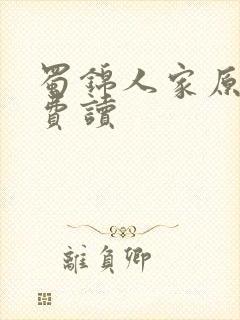 蜀錦人家原
費讀
離負卿